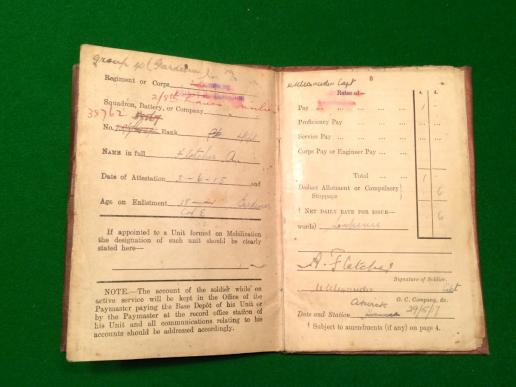 Group 40 (Gardener)
Regiment or Corps
2/5th Lancs
Squadron, Battery, or Company
35762
No. Rank Pte
NAME in full Fletcher A.
Date of Attestation 2-6-15 and
Age on Enlistment 18
If appointed to a Unit formed on Mobilization
the designation of such unit should be clearly
stated here—
NOTE.—The account of the soldier while on
active service will be kept in the Office of the
Paymaster paying the Base Depôt of his Unit or
by the Paymaster at the record office station of
his Unit and all communications relating to his
accounts should be addressed accordingly.
Capt
8
Rates of—
Pay ... ... ... 1
Proficiency Pay ... ... ...
Service Pay ... ... ...
Corps Pay or Engineer Pay ...
Total ... 1
Deduct Allotment or Compulsory
Stoppage 6
† NET DAILY RATE FOR ISSUE—
6
words) Sixpence
A. Fletcher
Signature of Soldier.
Capt
O. C. Company, &c.
Date and Station 29/5/17
† Subject to amendments (if any) on page 4.